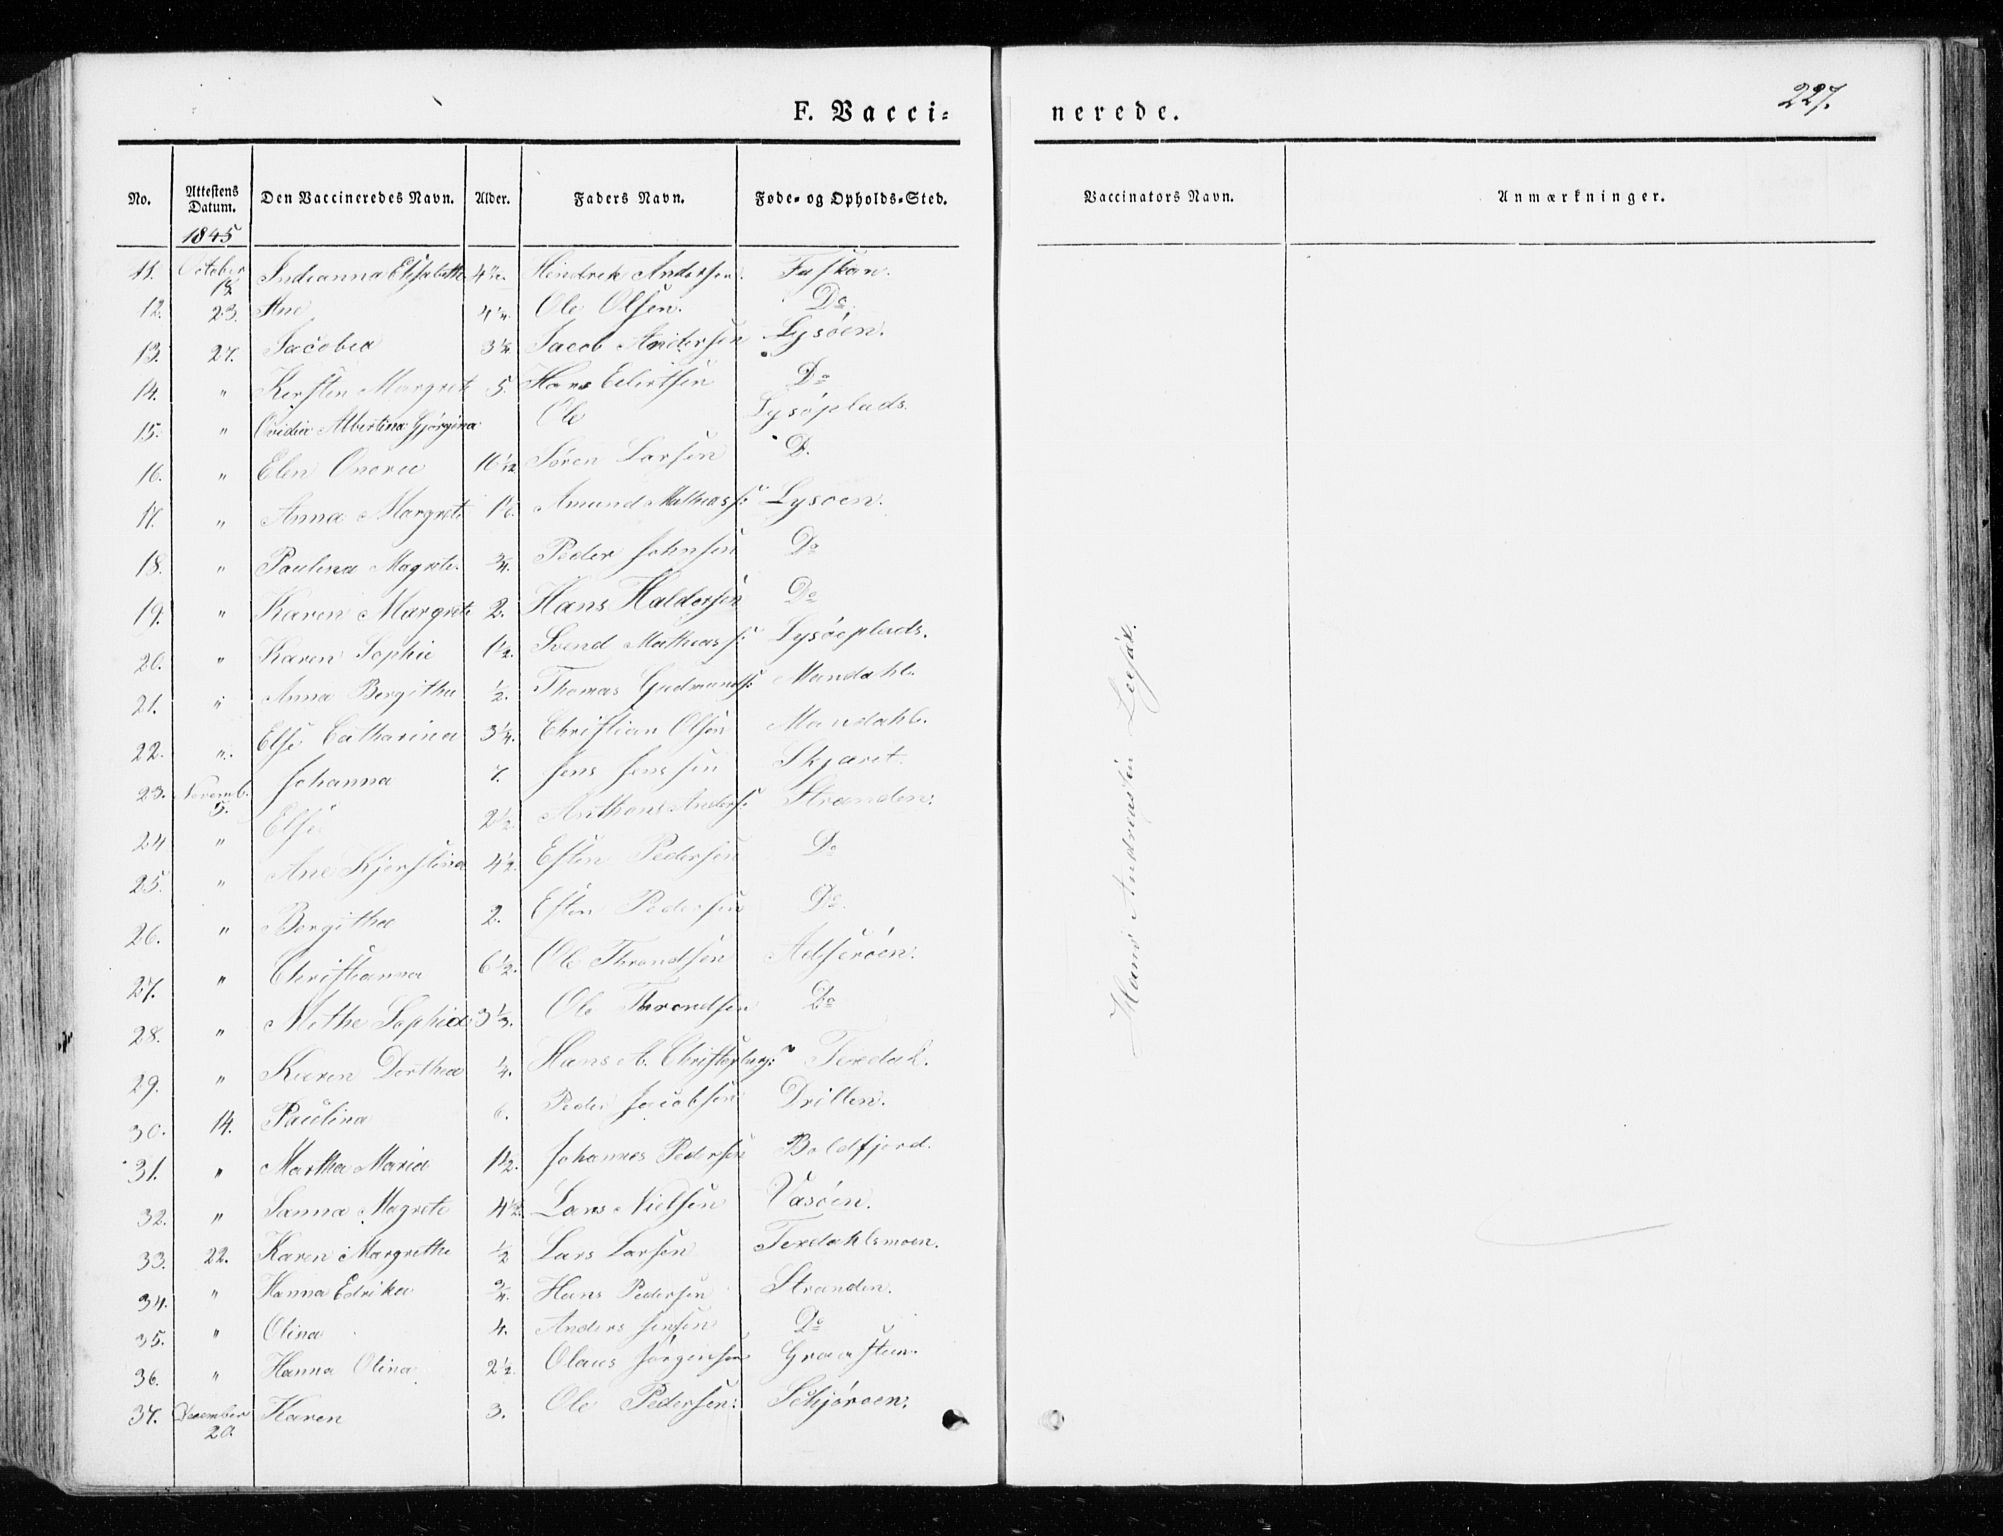 227.
F. Vacci=
nerede.
No. Attestens Datum. Den Vaccineredes Navn. Alder. Faders Navn. Føde= og Opholds=Sted. Vaccinators Navn. Anmærkninger.
1845
11. October 18 Indianna Elisabeth 4½. Hendrik Andersen.
12. 23. Ane 4¼. Ole Olsen. Do.
13. 27. Jacobea 3¼. Jacob Andersen Lysøen.
14. " Kersten Margret 5. Hans Do
15. " Ovidia Albertina Gjørgina Ole Lysøplads.
16. " Elen Onarea Søren Larsen D.
17. " Anna Margrete Amund Mathias s: Lysøen.
18. " Paulina Magrete. ¾. Peder Johnsen Do
19. " Karen Margrete 2. Hans Haldorsen Do
20. " Karen Sophie 1½. Svend Mathias s: Lysøeplads.
21. " Anna Bergitha ½. Thomas Gudmunds: Mandahl.
22. ". Else Catharina 3¼. Christian Olsen Mandahl.
23. Novemb. 5. Johanna 7. Jens Jenssen Skjaret.
24 " Else 2½ Anthons Anders: Stranden:
25. " Ane Kjerstina 4½. Esten Pedersen Do
26. " Bergitha 2. Esten Pedersen Do.
27. " Christianna 6½. Ole Throndsen
28. " Methe Sophia 3⅓. Ole Throndsen Do
29. " Karen Dorthea ¼. Hans A. Texdal.
30. 14. Paulina 6. Peder Jacobsen Drillen.
31. " Martha Maria 1½. Johannes Pedersen Boldfjord.
32. " Sanna Magrete 4½. Lars Nielsen Vasøen.
33. 22. Karen Margrethe ½ Lars Larsen Texdahlsmoen.
34. " Hanna Edrika ¾. Hans Pedersen Stranden.
35. " Olina 4. Anders Jensen Do
36. " Hanna Olina. 2½. Olaus Jørgensen Graasteen.
37. December 20. Karen 3. Ole Pedersen:
Hans Andreassen